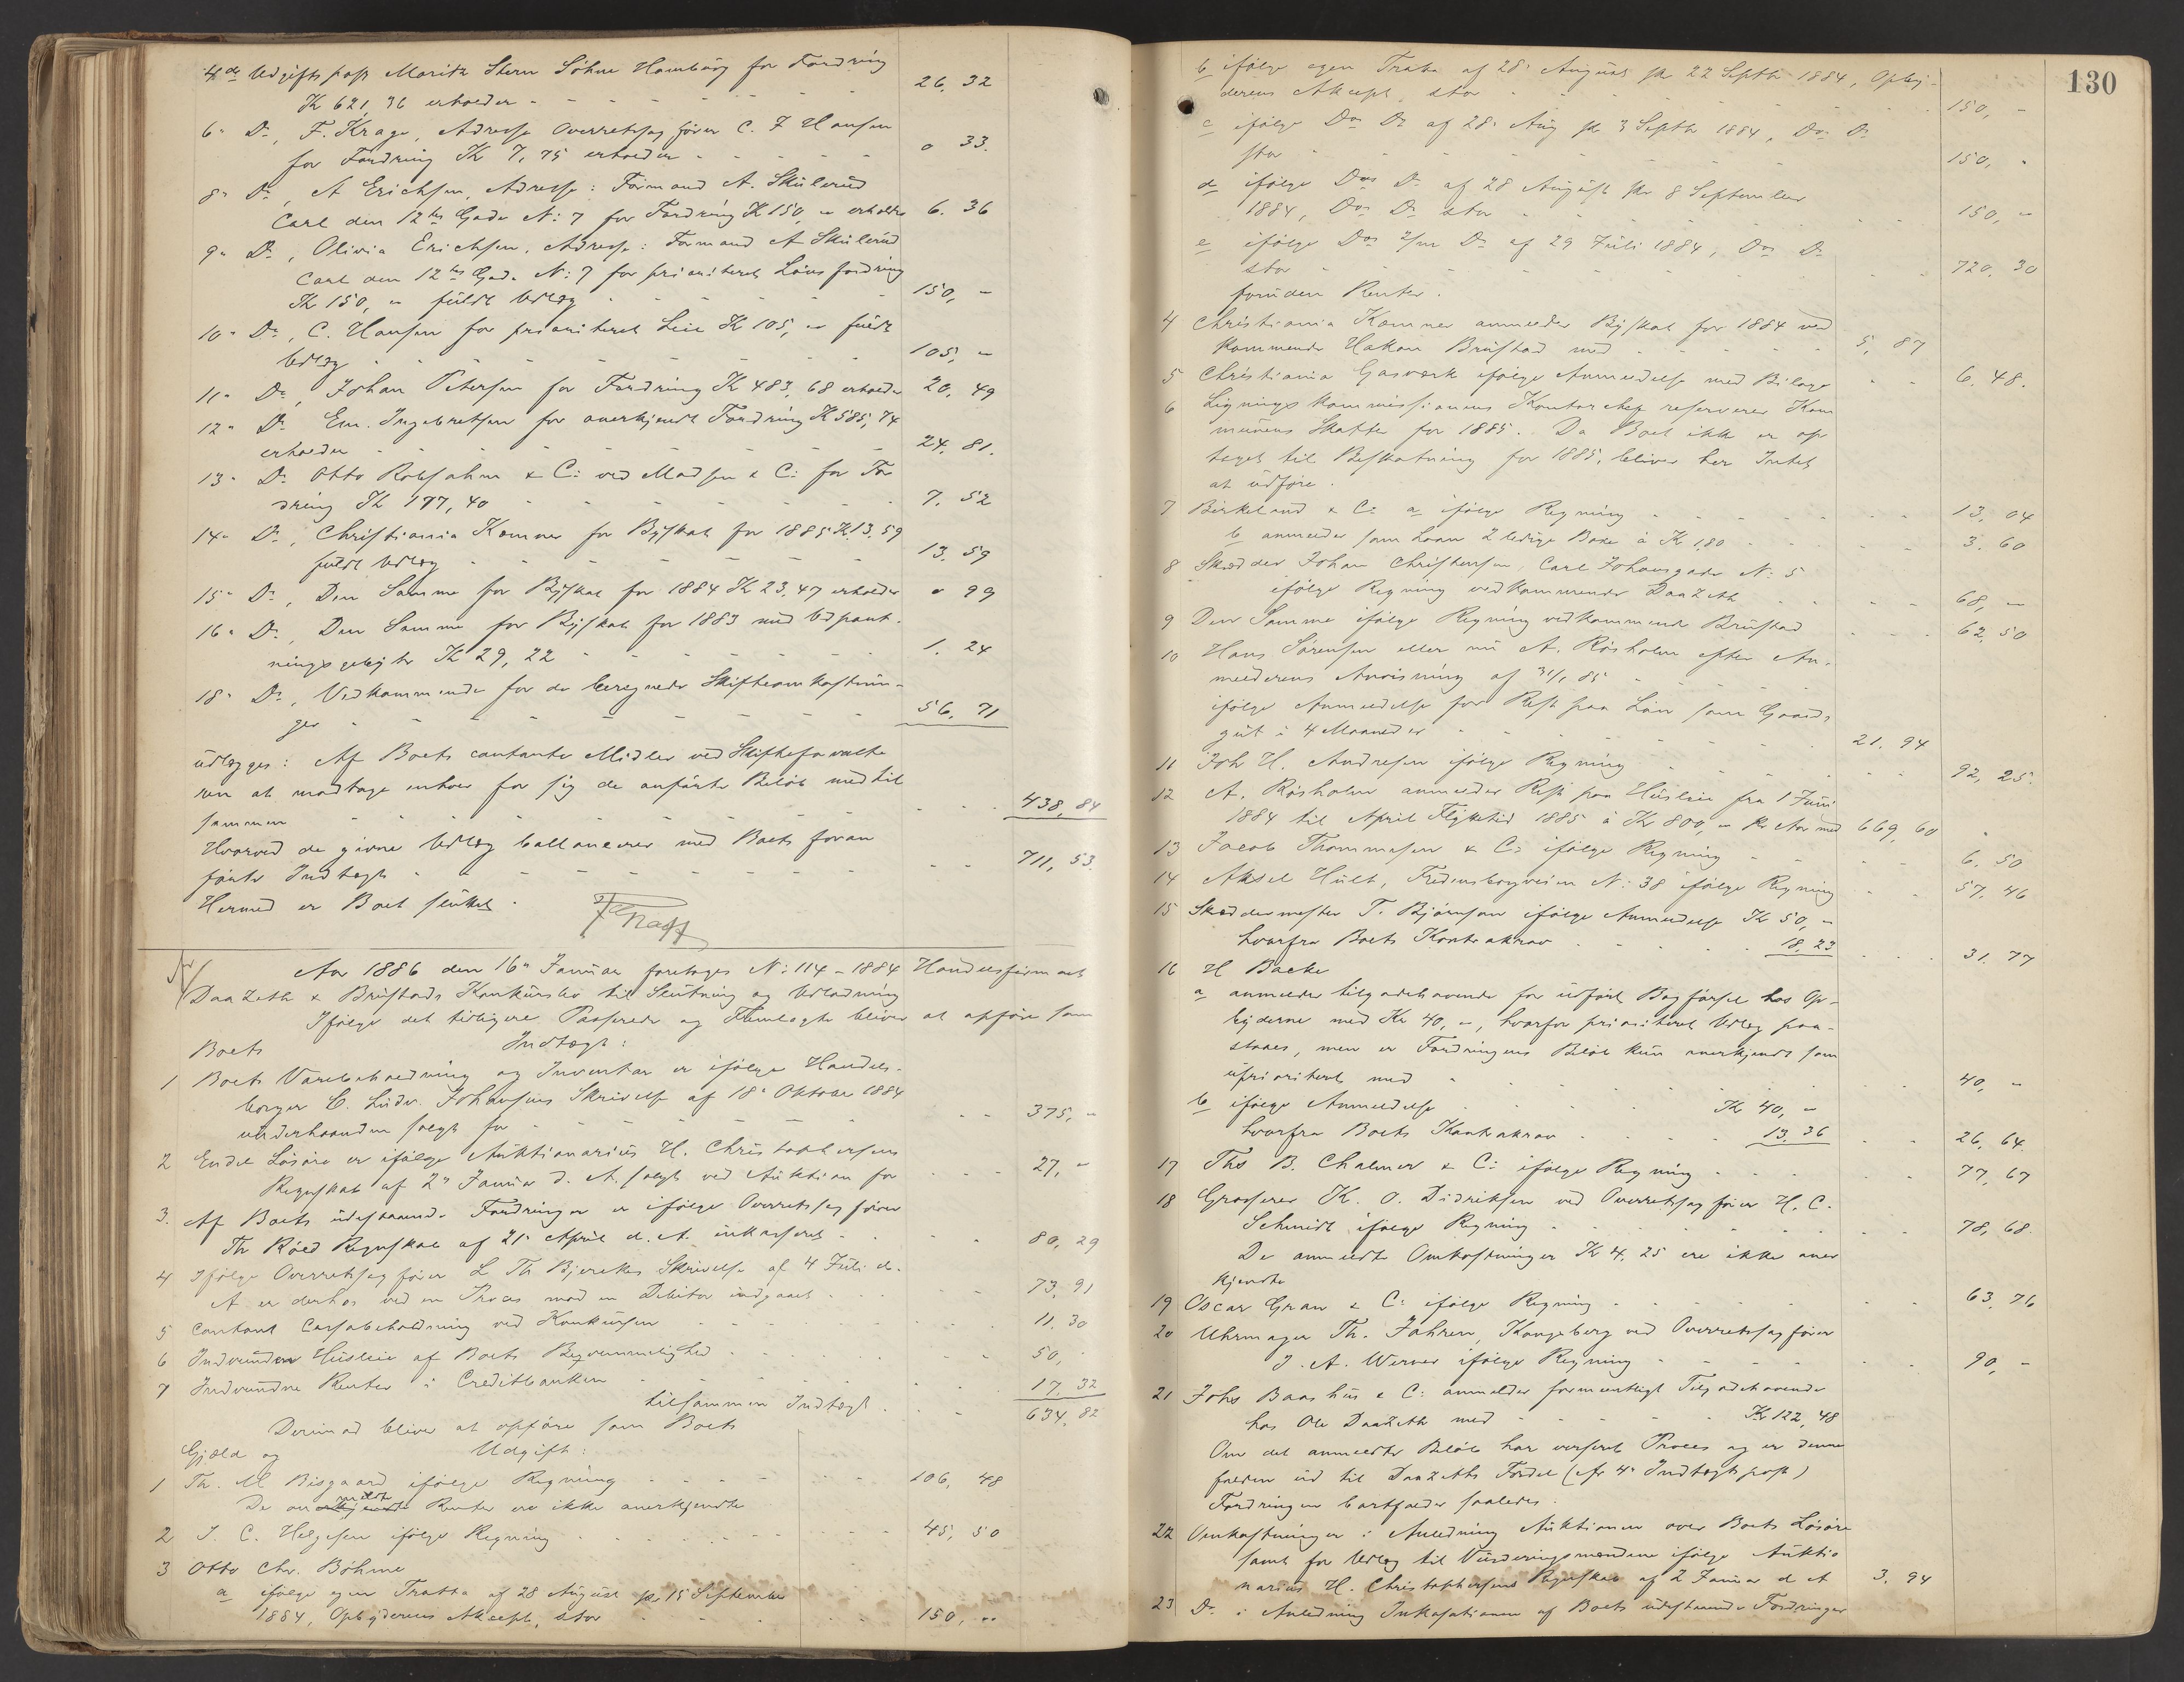 4de Udgiftspost Moritz Stern Söhne Hamburg for Fordring
Kr 621,36 erholder - - - 26. 32
6" Do, F. Krage, Adresse Overretssagfører C. F Hansen
for Fordring Kr 7,75 erholder - - - 0 33.
8" Do, A Erichsen, Adresse: Formand A. Skulerud
Carl den 12tes Gade No: 7 for Fordring Kr 150,- erholder 6. 36
9" Do, Olivia Erichsen, Adresse: Formand A Skulerud
Carl den 12tes Gade No: 7 for prioriteret Lønsfordring
Kr 150,- fuldt Udlæg - - - 150, -
10" Do, C. Hansen for prioriteret Leie Kr 105,- fuldt
Udlæg - - - 105, -
11" Do, Johan Petersen for Fordring Kr 483,68 erholder 20, 49
12" Do Em. Ingebretsen for anerkjendt Fordring Kr 585,74
erholder - - - 24. 81.
13" Do Otto Robsahm & Co: ved Madsen & Co: for For
dring Kr 177,40 - - - 7. 52
14" Do, Christiania Kæmner for Byskat for 1885 Kr 13,59
fuldt Udlæg - - - 13. 59
15" Do, Den Samme for Byskat for 1884 Kr 23,47 erholder 0 99
16" Do, Den Samme for Byskat for 1883 med Udpant-
ningsgebyhr Kr 29,22 - - - 1. 24
18" Do, Vedkommende for de beregnede Skifteomkostnin-
ger - - - 56. 71
udlægges: Af Boets contante Midler ved Skifteforvalte
ren at modtage enhver for sig de anførte Beløb med til
sammen - - - 438, 84
Hvorved de givne Udlæg ballancerer med Boets foran
førte Indtægt - - - 711, 53.
Hermed er Boet sluttet.
Aar 1886 den 16" Januar foretoges No: 114 - 1884 Handelsfirmaet
Daazeth & Brustads Konkursbo til Slutning og Udlodning
Ifølge det tidligere Passerede og Fremlagte bliver at opføre som
Boets Indtægt:
1 Boets Varebeholdning og Inventar er ifølge Handels-
borger C. Ludv. Johansens Skrivelse af 18" Oktober 1884
underhaanden solgt for - - - 375, -
2 Endel Løsøre er ifølge Auktionarius H. Christophersens
Regnskab af 2" Januar d. A. solgt ved Auktion for - - - 27, -
3. Af Boets udestaaende Fordringer er ifølge Overretssagfører
Th Röed Regnskab af 21" April d. A. inkasseret - - - 80, 29
4 Ifølge Overretssagfører L Th Bjerckes Skrivelse af 4 Juli d.
A er derhos ved en Proces mod en Debitor indgaaet - - - 73. 91
5 Contant Cassabeholdning ved Konkursen - - - 11. 30
6 Indvunden Husleie af Boets Beqvemmelighed - - - 50, -
7 Indvundne Renter i Creditbanken - - - 17. 32
tilsammen Indtægt - - - 634, 82
Derimod bliver at opføre som Boets
Gjæld og Udgift:
1 Th. M Bisgaard ifølge Regning - - - 106, 48
De anmeldte Renter ere ikke anerkjendte
2 I. C. Helgesen ifølge Regning - - - 45, 50
3 Otto Chr. Böhme
a ifølge egen Tratta af 28 August pr 15 September
1884, Opbyderens Akcept, stor - - - 150, -
130
b ifølge egen Tratta af 28" August pr 22 Septbr 1884, Opby-
derens Akcept, stor - - - 150, -
c ifølge Dos Do af 28" Aug pr 3 Septbr 1884, Dos Do
stor - - - 150, -
d ifølge Dos Do af 28 August pr 8 September
1884, Dos Do stor - - - 150, -
e ifølge Dos 2/m Do af 29 Juli 1884, Dos Do
stor - - - 720. 30
foruden Renter.
4 Christiania Kæmner anmelder Byskat for 1884 ved
kommende Hakon Brustad med - - - 5, 87
5 Christiania Gasværk ifølge Anmeldelse med Bilage - - 6. 48.
6 Ligningskommissionens Kontorchef reserverer Kom
munens Skatter for 1885. Da Boet ikke er op
taget til Beskatning for 1885, bliver her Intet
at udføre.
7 Birkelund & Co: a ifølge Regning - - - 13, 04
b anmelder som Laan 2 ledige Baxe à Kr 1,80 - - - 3. 60
8 Skrædder Johan Christensen, Carl Johansgade No: 5
ifølge Regning vedkommende Daazeth - - - 68, -
9 Den Samme ifølge Regning vedkommende Brustad - - - 62. 50
10 Hans Sørensen eller nu A. Rösholm efter An-
melderens Anvisning af 31/1 85
ifølge Anmeldelse for Rest paa Løn som Gaards
gut i 4 Maaneder - - - 21. 94
11 Joh H. Andresen ifølge Regning - - - 92, 25.
12 A. Rösholm anmelder Rest paa Husleie fra 1 Juni
1884 til April Flyttetid 1885 à Kr 800,- pr Aar med 669, 60
13 Jacob Thommesen & Co: ifølge Regning - - - 6. 50
14 Aksel Hult, Fredensborgveien No: 38 ifølge Regning - - 57. 46
15 Skræddermester T. Bjørnson ifølge Anmeldelse Kr 50, -
hvorfra Boets Kontrakrav - - - 18. 23 - - - 31. 77
16 H Backe
a anmelder tilgodehavende for udført Bogførsel hos Op-
byderne med Kr 40,-, hvorfor prioriteret Udlæg paa-
staaes, men er Fordringens Beløb kun anerkjendt som
uprioriteret med - - - 40, -
b ifølge Anmeldelse - - - Kr 40, -
hvorfra Boets Kontrakrav - - - 13. 36 - - 26, 64.
17 Ths B. Chalmer & Co: ifølge Regning - - - 77, 67
18 Grosserer K. O. Didriksen ved Overretssagfører H. C.
Schmidt ifølge Regning - - - 78, 68.
De anmeldte Omkostninger Kr 4,25 ere ikke aner
kjendte
19 Oscar Gran & Co: ifølge Regning - - - 63. 76
20 Uhrmager Th. Fahren, Kongsberg ved Overretssagfører
J. A. Werner ifølge Regning - - - 90, -
21 Johs Baashus & Co: anmelder formentligt Tilgodehavende
hos Ole Daazeth med - - - Kr 122,48
Om det anmeldte Beløb har verseret Proces og er denne
falden ud til Daazeths Fordel (cfr 4" Indtægtspost)
Fordringen bortfalder saaledes.
22 Omkostninger i Anledning Auktionen over Boets Løsøre
samt for Udlæg til Vurderingsmændene ifølge Auktio
narius H. Christophersens Regnskab af 2 Januar d A 3. 94
23 Do i Anledning Inkasationen af Boets udestaaende Fordringer